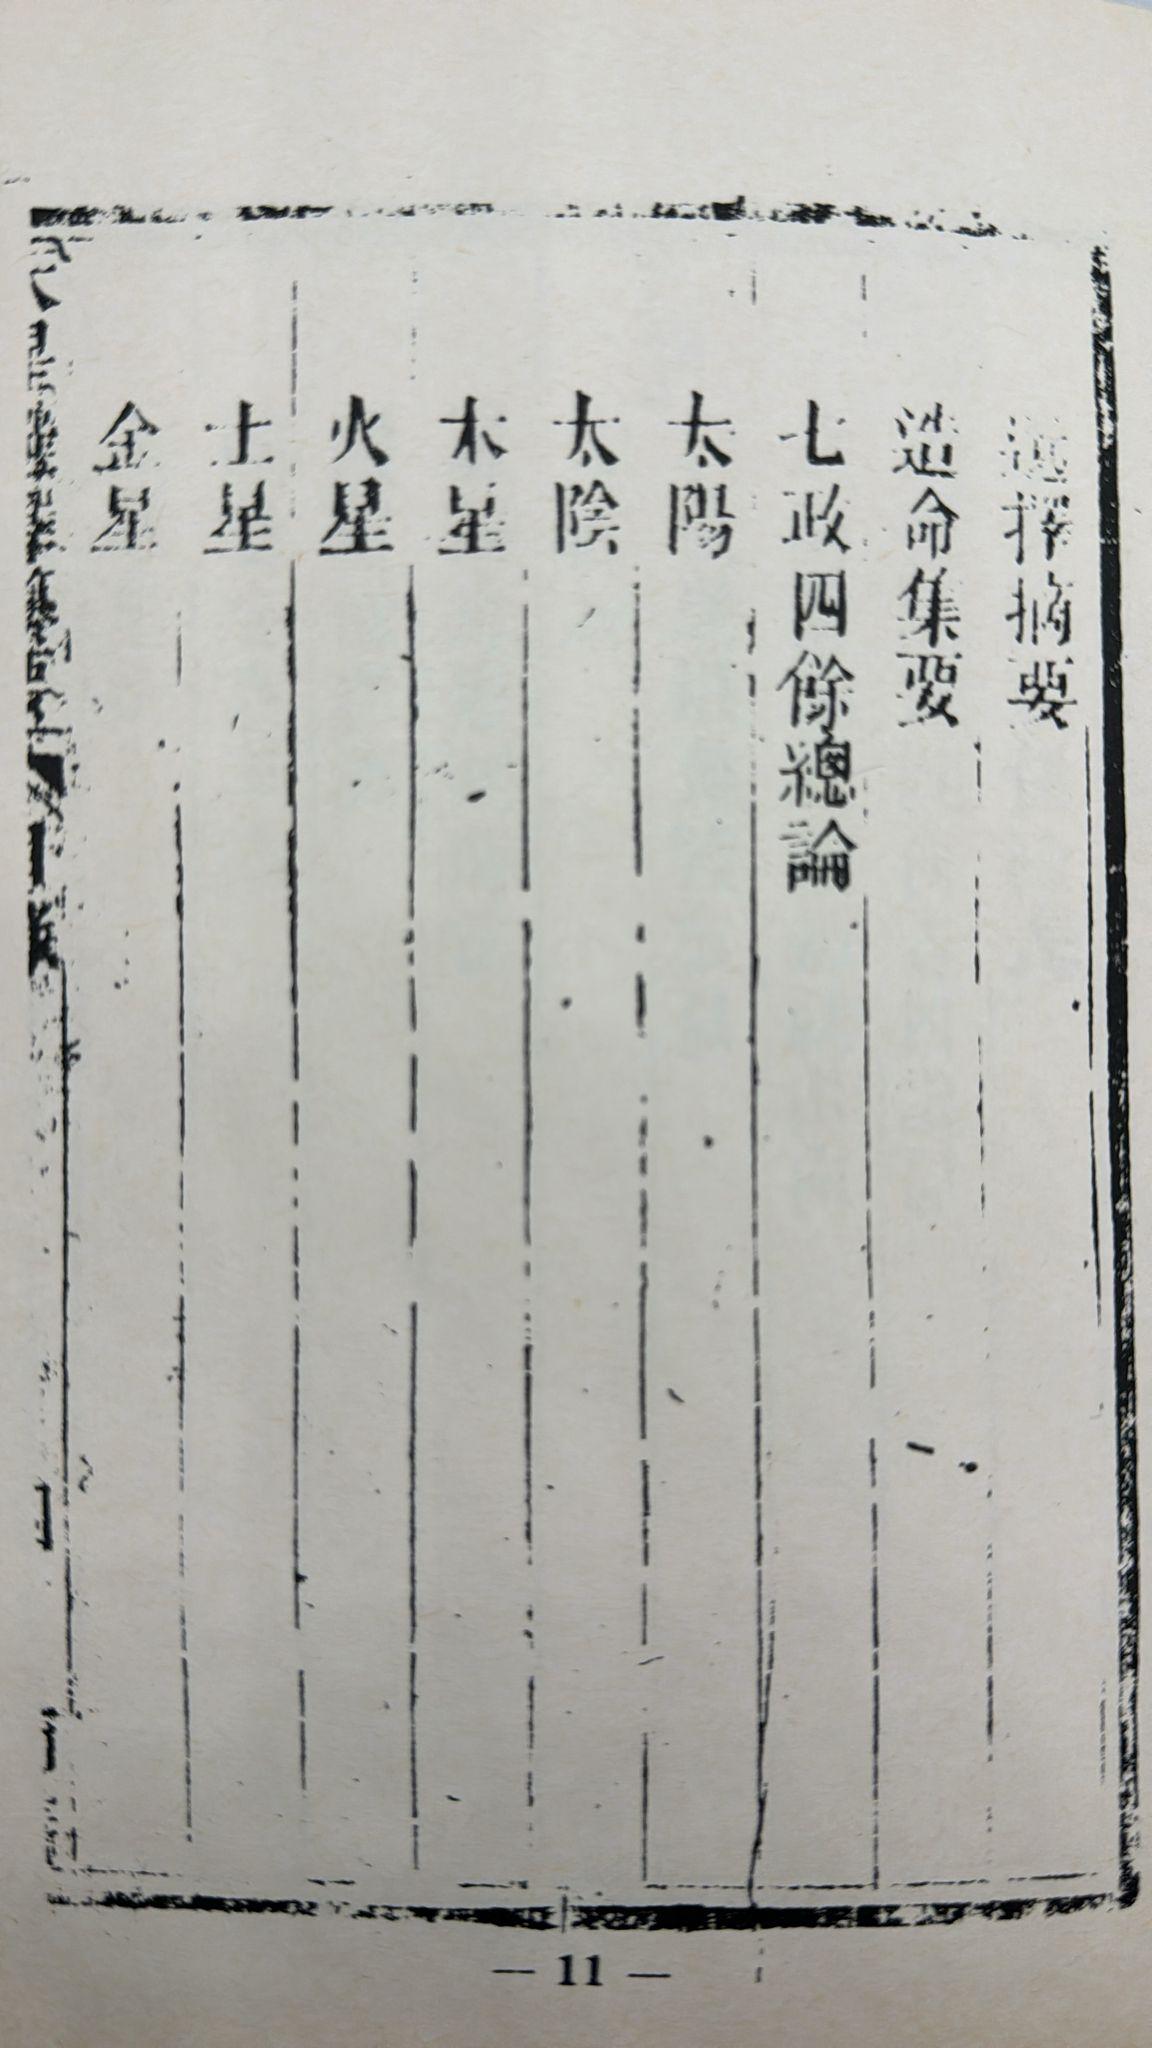 選擇摘要
造命集要
七政四餘總論
太陽
太陰
木星
火星
土星
金星
— 11 —